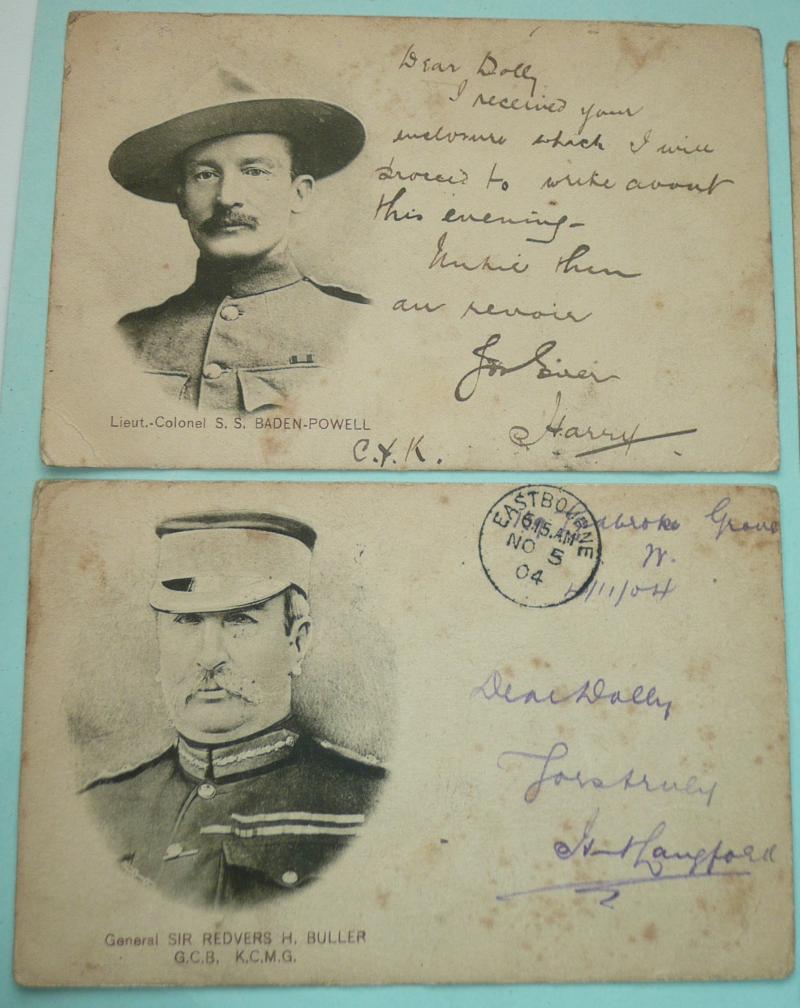 Dear Dolly
I received your
enclosure which I will
proceed to write about
this evening -
Untie then
au revoir
Yrs Ever
Harry
Lieut.-Colonel S. S. BADEN-POWELL
C.Y.K.
EASTBOURNE
6.15.AM
NO 5
04
Pembroke Grove
W.
4/11/04
Dear Dolly
Yorstruly
Langford
General SIR REDVERS H. BULLER
G.C.B. K.C.M.G.